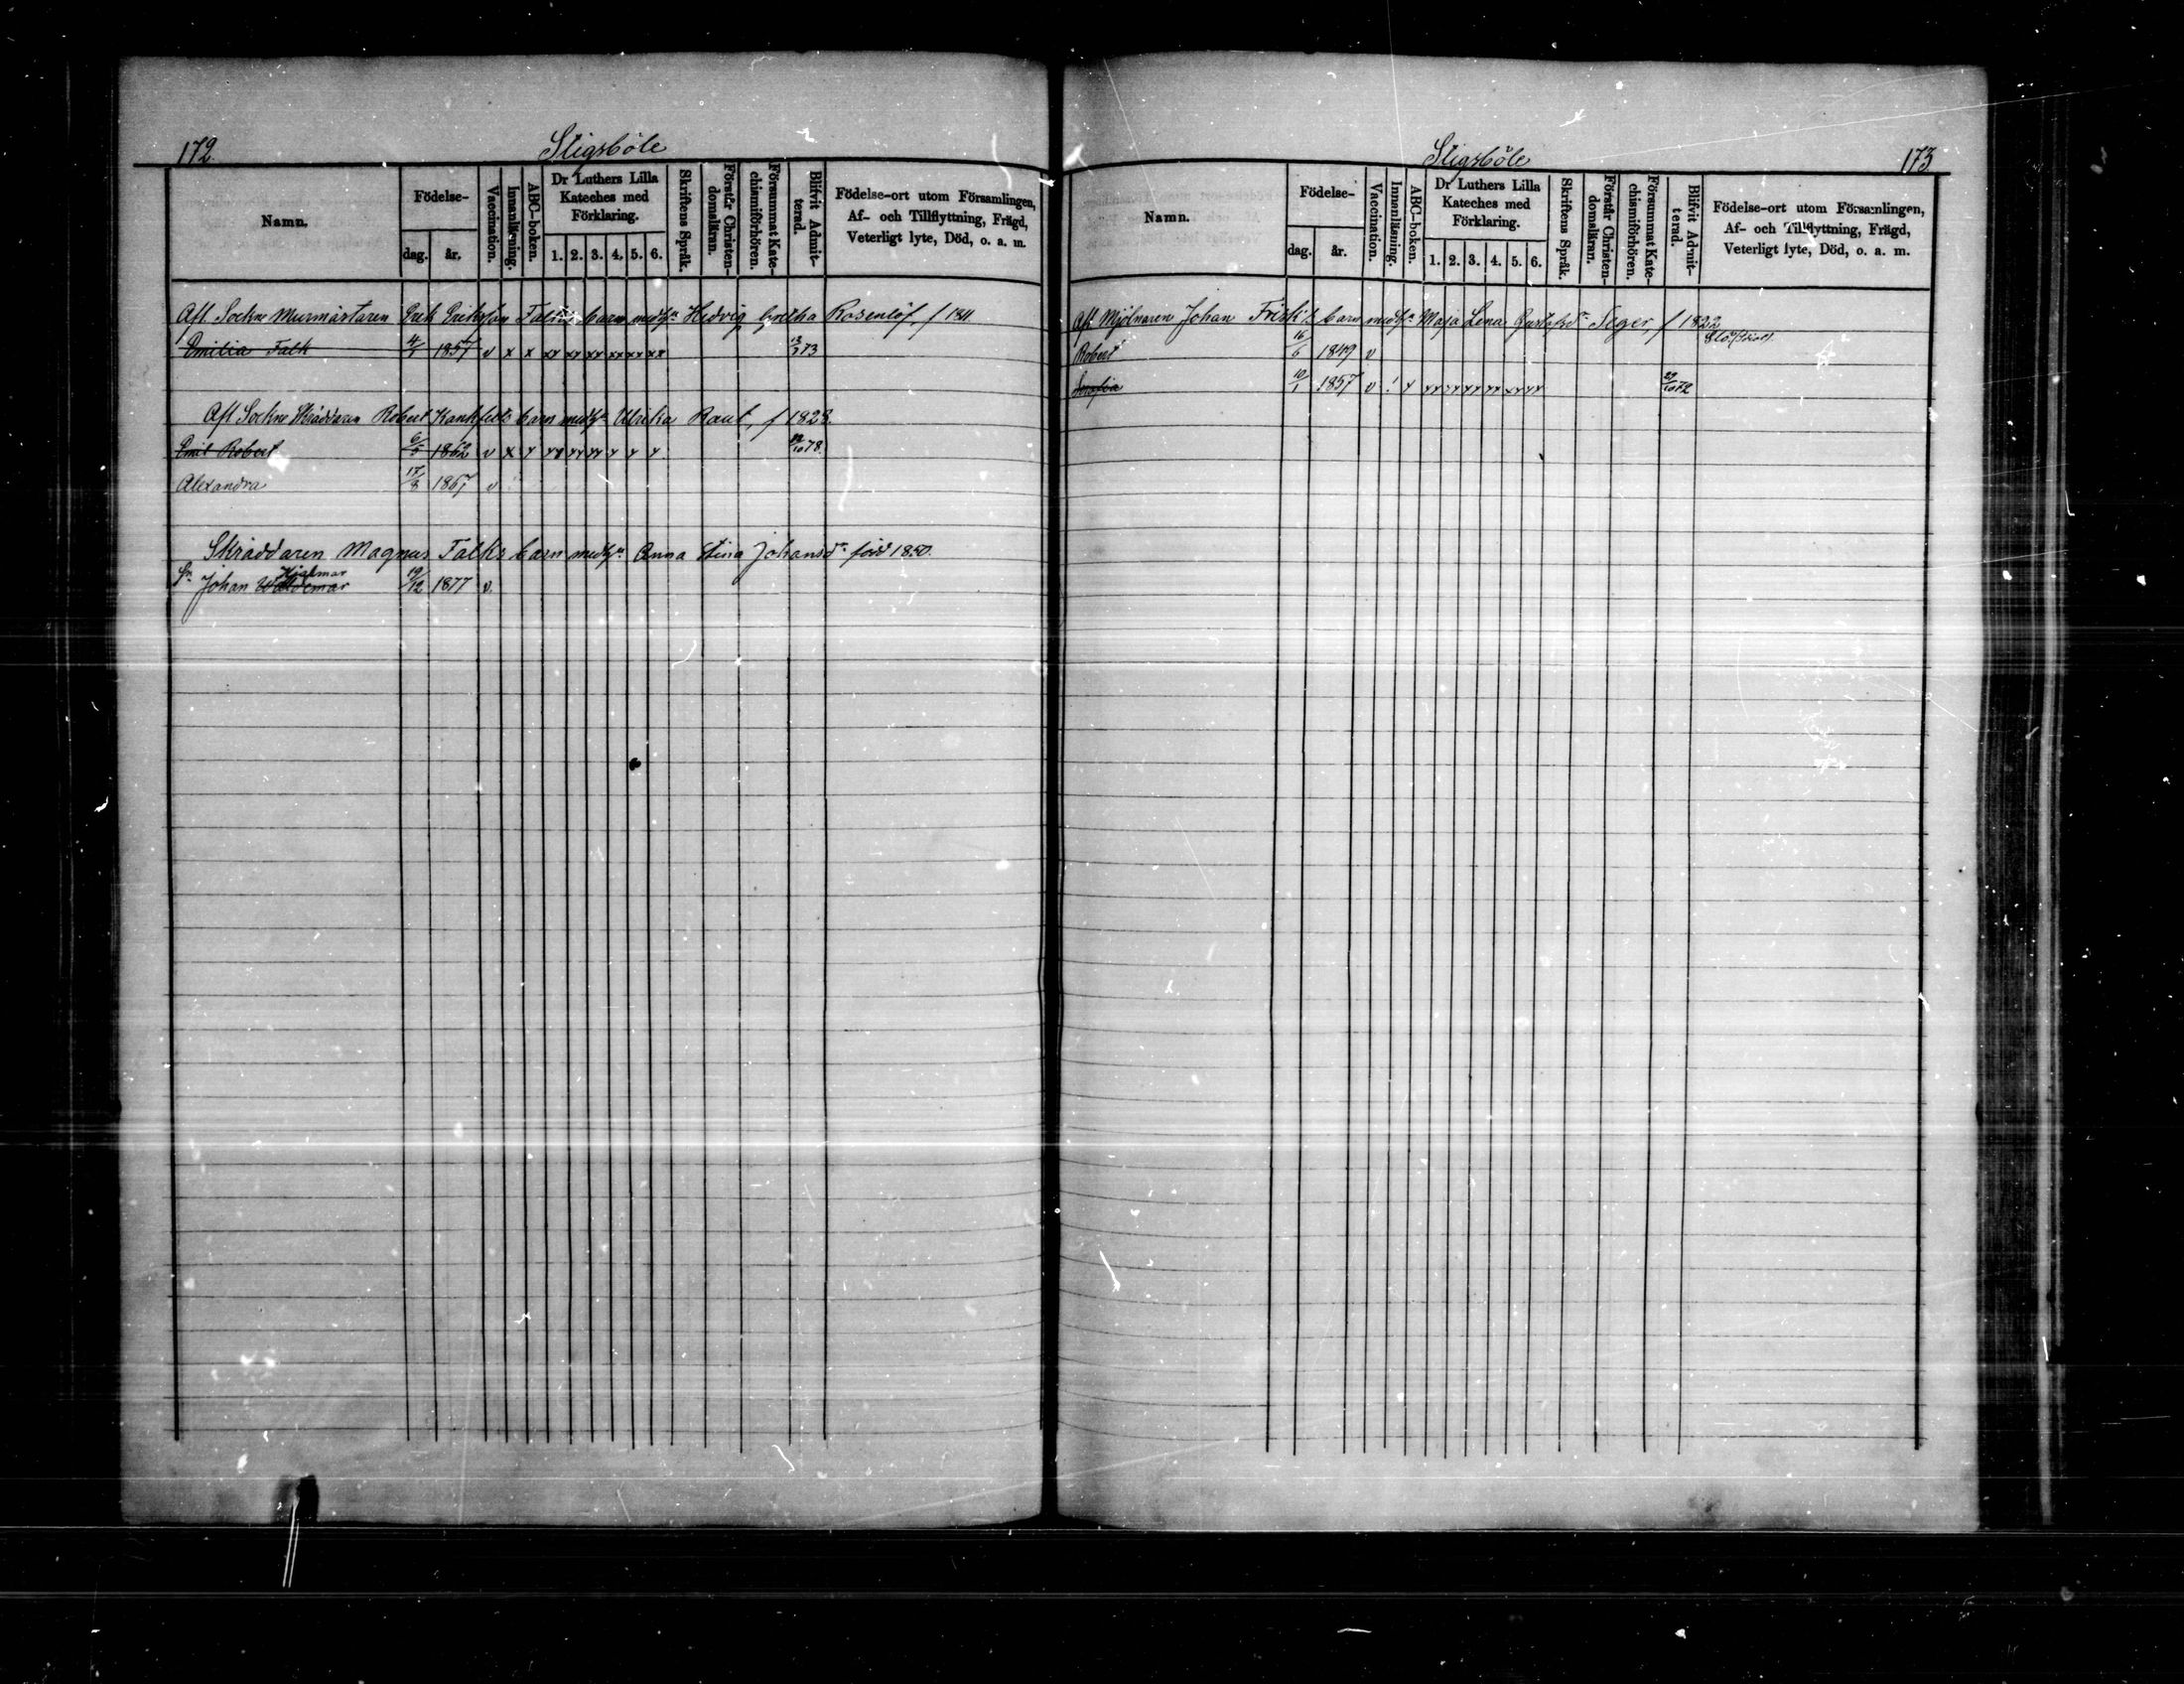 172.
Stigsböle
Namn.
Födelse-
dag.
år.
Vaccination.
Innanläsning.
ABC-boken.
Dr Luthers Lilla
Kateches med
Förklaring.
1. 2. 3. 4. 5. 6.
Skriftens Språk.
Förstår Christen-
domsläran.
Försummat Kate-
chismiförhören.
Blifvit Admit-
terad.
Födelse-ort utom Församlingen,
Af- och Tillflyttning, Frägd,
Veterligt lyte, Död, o. a. m.
Afl. Sockne Murmästaren Erik Eriksson barn med Hedvig Rosenlöf, f 1811
Emilia Falk 4/1 1857 v x x xx xx xx xx xx xx 73
Afl Sockne Skräddaren Robert barn med Ulrika Raut, f 1828.
Emil Robert 6/5 1862 v x x xx xx xx x x x 78.
Alexandra 17/8 1867 v
Skräddaren Magnus Falks barn med Anna Stina Johansd:r född 1850.
Hjalmar
Johan Waldemar 19/12 1877 v.
Stigsböle
173
Namn.
Födelse-
dag.
år.
Vaccination.
Innanläsning.
ABC-boken.
Dr Luthers Lilla
Kateches med
Förklaring.
1. 2. 3. 4. 5. 6.
Skriftens Språk.
Förstår Christen-
domsläran.
Försummat Kate-
chismiförhören.
Blifvit Admit-
terad.
Födelse-ort utom Församlingen,
Af- och Tillflyttning, Frägd,
Veterligt lyte, Död, o. a. m.
Afl. Mjölnaren Johan Frisk's barn med Maja Lena Gustafsd:r Seger f 1822
Robert 16/6 1849 v
1857 v